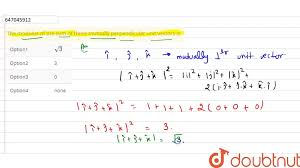 647045912
The magnitude of the sum of three mutually perpendicular unit vectors is
Option1 √3
Option2 3
Option3 1
Option4 0
î, ĵ, k̂ → mutually ⊥ar unit vector
|î+ĵ+k̂|² = |î|² + |ĵ|² + |k̂|²
+ 2(î·ĵ + ĵ·k̂ + k̂·î)
|î+ĵ+k̂|² = 1+1+1+2(0+0+0)
|î+ĵ+k̂|² = 3.
|î+ĵ+k̂| = √3.
doubtnut